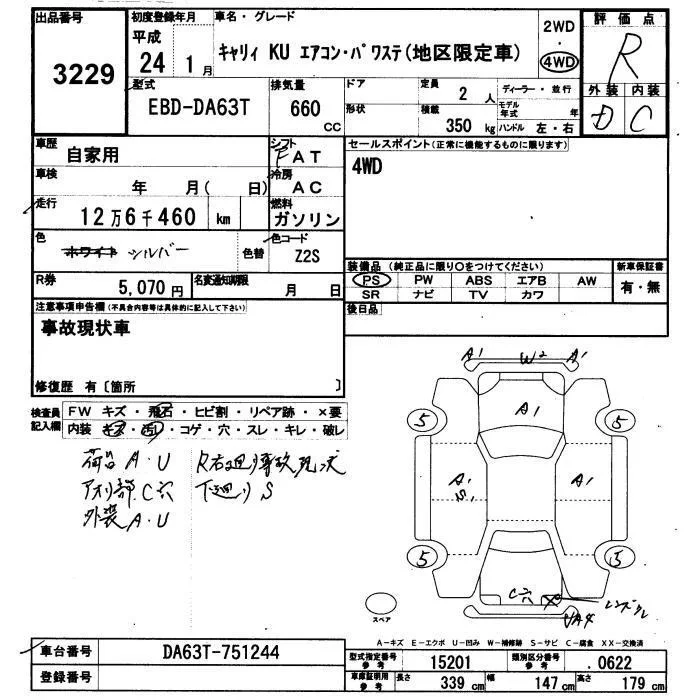 出品番号
3229
初度登録年月
平成
24 1 月
車名・グレード
キャリィ KU エアコン・パワステ(地区限定車)
2WD
4WD
評価点
R
外装 内装
D C
型式
EBD-DA63T
排気量
660
CC
ドア
形状
定員
2 人
積載
350 kg
ディーラー・並行
モデル年式 年
ハンドル 左・右
車歴
自家用
シフト
F A T
車検
年 月( 日)
冷房
A C
走行
12万6千460 km
燃料
ガソリン
色
ホワイト シルバー
色替
色コード
Z2S
R券
5,070 円
名変通知期限
月 日
セールスポイント(正常に機能するものに限ります)
4WD
装備品 (純正品に限り○をつけてください)
PS PW ABS エアB AW
SR ナビ TV カワ
新車保証書
有・無
後日品
注意事項申告欄(不具合内容等は具体的に記入して下さい)
事故現状車
修復歴 有〔箇所 〕
検査員記入欄
FW キズ・飛石・ヒビ割・リペア跡・×要
内装 キズ・汚れ・コゲ・穴・スレ・キレ・破レ
荷台 A・U
アオリ部 C穴
外装 A・U
R右廻り事故現状
下廻り S
A1 W2 A1
A1
5 5
A1
S1
A1
5 5
C穴
レンズワレ
UA4
スペア
A-キズ E-エクボ U-凹み W-補修跡 S-サビ C-腐食 XX-交換済
車台番号
DA63T-751244
登録番号
型式指定番号
参考
15201
類別区分番号
参考
.0622
車庫証明用
参考
長さ 339 cm
幅 147 cm
高さ 179 cm